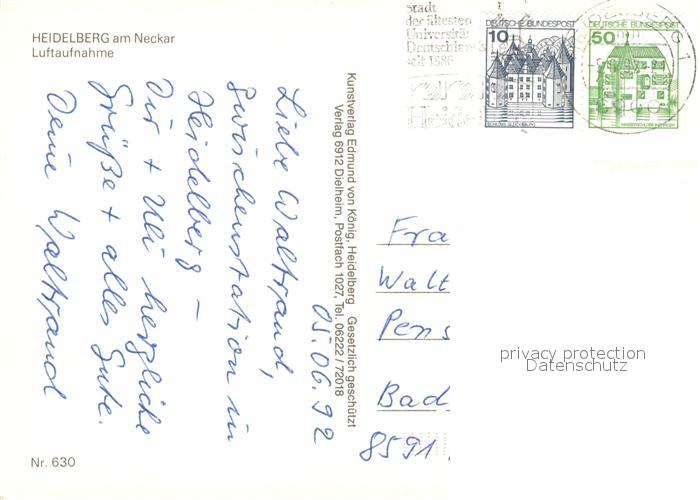 HEIDELBERG am Neckar
Luftaufnahme
Stadt
der ältesten
Universität
Deutschlands
seit 1386
DEUTSCHE BUNDESPOST
10
SCHLOSS GLÜCKSBURG
DEUTSCHE BUNDESPOST
50
WASSERSCHLOSS INZLINGEN
05.06.92
Liebe Waltraud,
Zwischenstation in
Heidelberg –
Dir + Uli herzliche
Grüße + alles Gute.
Deine Waltraud
Kunstverlag Edmund von König, Heidelberg Gesetzlich geschützt
Verlag 6912 Dielheim, Postfach 1027, Tel. 06222 / 72018
Fra
Walt
Pens
Bad
8591
privacy protection
Datenschutz
Nr. 630